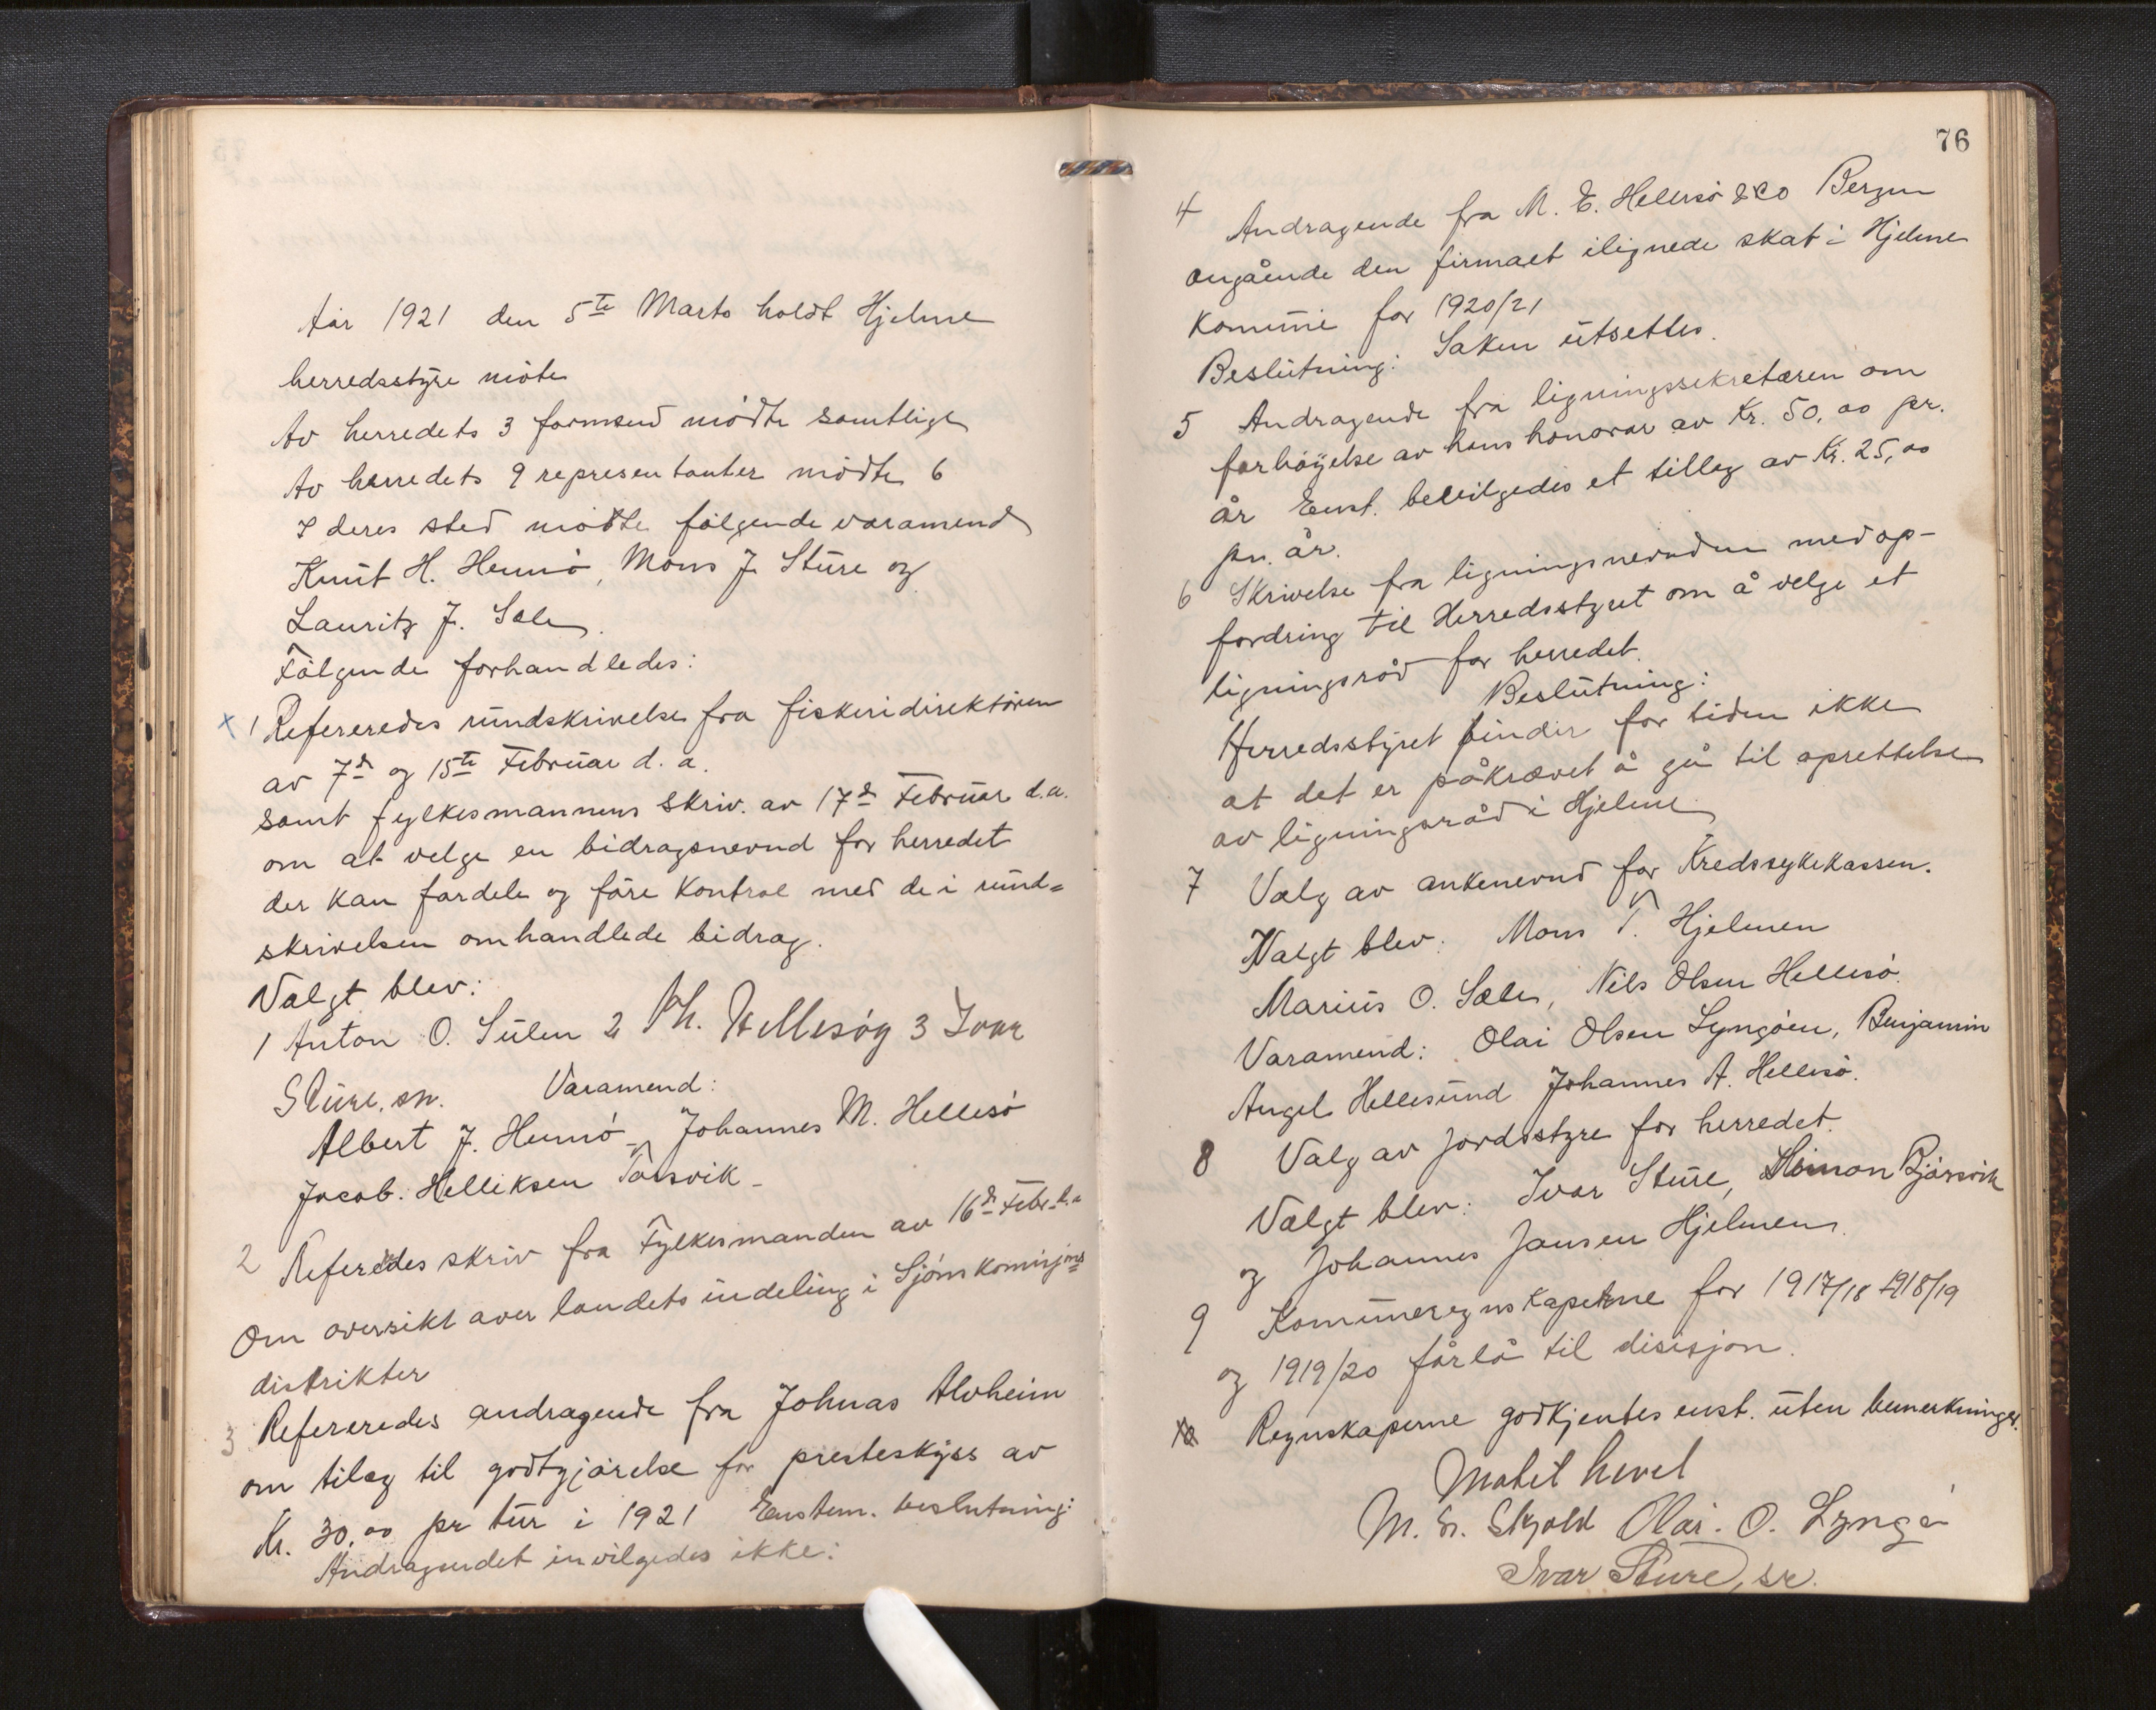 Aar 1921 den 5te Marts holdt Hjelme
herredsstyre möte
Av herredets 3 formend mödte samtlige
Av herredets 9 representanter mödte 6
I deres sted mötte fölgende varamend
Knut H. Hernö, Mons J. Sture og
Lauritz J. Sæle.
Fölgende forhandledes:
x 1 Refereredes rundskrivelse fra fiskeridirektören
av 7de og 15te Februar d. a.
samt fylkesmannens skriv. av 17de Februar d.a.
om at velge en bidragsnevnd for herredet
der kan fordele og före kontrol med de i rund=
skrivelsen omhandlede bidrag.
Valgt blev:
1 Anton O. Sulen 2 Ph. Hellesöy 3 Ivar
Sture. sn. Varamend:
Albert J. Hernö - Johannes M. Hellesö
Jacob. Helliksen Torsvik -
2 Refereredes skriv fra Fylkesmanden av 16de Febr. d.a
Om oversikt over landets indeling i Sjömkomisjons
distrikter
3 Refereredes andragende fra Johnas Alvheim
om tileg til godtgjörelse for presteskyss av
Kr. 30,00 pr tur i 1921 Enstem. beslutning:
Andragendet invilgedes ikke:
76
4 Andragende fra M. E. Hellesö & Co Bergen
angående den firmaet ilignede skat i Hjelme
Komune for 1920/21
Beslutning: Saken utsettes.
5 Andragende fra ligningssekretæren om
forhöyelse av hans honorar av Kr. 50,00 pr.
år Enst. bevilgedes et tilleg av Kr. 25,00
pr. år.
6 Skrivelse fra ligningsnevnden med op-
fordring til Herredsstyret om å velge et
ligningsråd for herredet.
Beslutning:
Herredsstyret finder for tiden ikke
at det er påkrævet å gå til oprettelse
av ligningsråd i Hjelme
7 Valg av ankenevnd for Kredssykekassen.
Valgt blev: Mons T. Hjelmen
Marius O. Sæle, Nils Olsen Hellesö.
Varamend: Olai Olsen Lyngöen, Benjamin
Angel Hellesund Johannes A. Hellesö.
8 Valg av jordsstyre for herredet.
Valgt blev: Ivar Sture, Simon Bjørsvik
og Johannes Jansen Hjelmen.
9 Komuneregnskaperne for 1917/18 1918/19
og 1919/20 forlå til disisjon.
Regnskaperne godkjentes enst. uten bemerkninger.
Mötet hevet
M. N. Skjold Olai. O. Lyngö
Ivar Sture, sr.